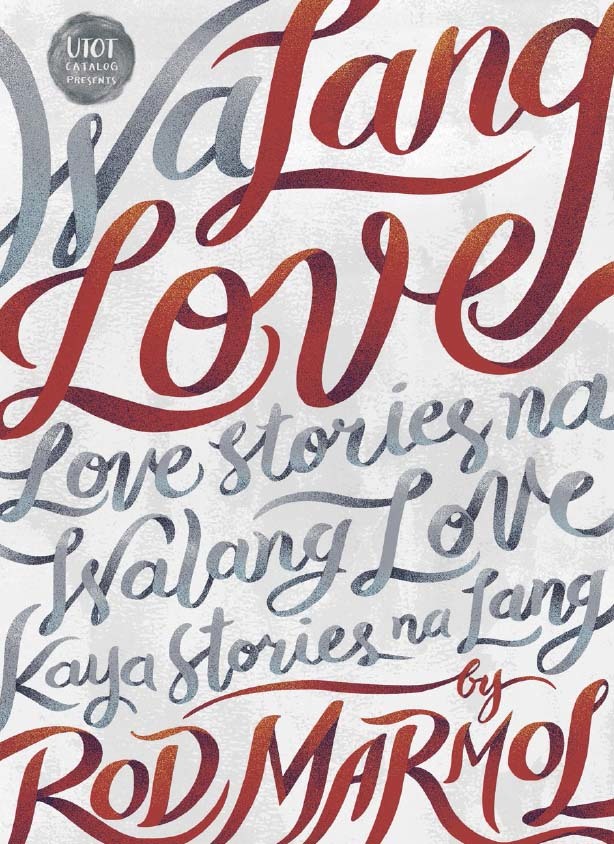 UTOT
CATALOG
PRESENTS
Walang
Love
Love stories na
Walang Love
Kaya Stories na Lang
by
ROD MARMOL